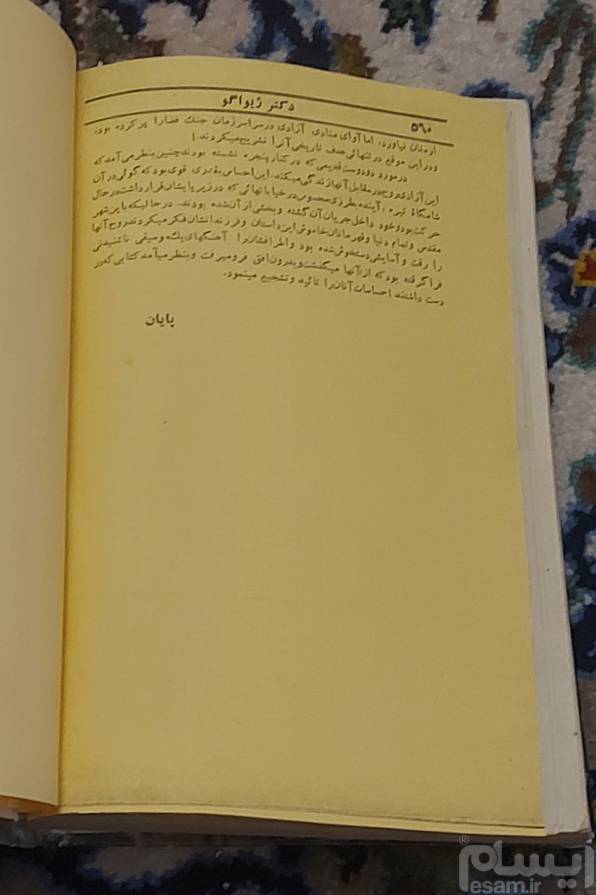 ۵۹۰
دکتر ژیواگو
ارمغان نیاورد، اما آوای منادی آزادی در سراسر زمان جنگ فضا را پر کرده بود،
و در این موقع در تنهائی هدف تاریخی آنرا تشریح میکردند.
در مورد دو دوست قدیمی که در کنار پنجره نشسته بودند چنین بنظر می آمد که
این آزادی روح در مقابل آنها زندگی میکند، این احساس بقدری قوی بود که گوئی در آن
شامگاه تیره، آینده بطرزی محسوس در خیابانهائی که در زیر پایشان قرار داشت در حال
حرکت بود و خود داخل جریان آن گشته و بخشی از آن شده بودند. در حالیکه باین شهر
مقدس و تمام دنیا و قهرمانان خاموش این داستان و فرزندانشان فکر میکردند روح آنها
را رقت و آسایشی دستخوش شده بود و اطرافشان را آهنگهای یک موسیقی ناشنیدنی
فرا گرفته بود که از آنها میگذشت و بدرون افق فرو میرفت و بنظر میآمد کتابی که در
دست داشتند احساسات آنان را تائید و تشجیع مینمود.
پایان
ایسام®
esam.ir